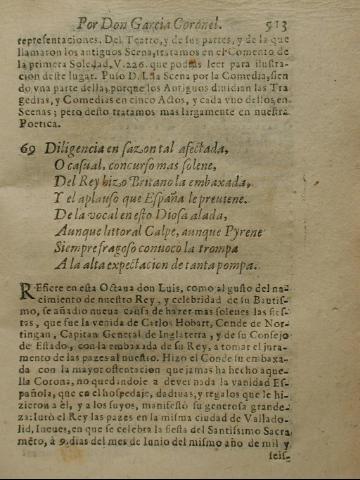 Por Don Garcia Coronel. 513
representaciones. Del Teatro, y de sus partes, y de la que
llamaron los antiguos Scena, tratamos en el Comento de
la primera Soledad, V.226. que podràs leer para ilustra
cion deste lugar. Puso D. L. la Scena por la Comedia, sien
do vna parte della; porque los Antiguos diuidian las Tra
gedias, y Comedias en cinco Actos, y cada vno dellos en
Scenas; pero desto tratamos mas largamente en nuestra
Poetica.
69 Diligencia en sazon tal afectada,
O casual, concurso mas solene,
Del Rey hizo Britano la embaxada,
Y el aplauso que España le preuiene.
De la vocal en esto Diosa alada,
Aunque littoral Calpe, aunque Pyrene
Siempre fragoso conuoco la trompa
A la alta expectacion de tanta pompa.
REfiere en esta Octaua don Luis, como al gusto del na-
cimiento de nuestro Rey, y celebridad de su Bautis-
mo, se añadio nueua causa de hazer mas solenes las fies-
tas, que fue la venida de Carlos Hobart, Conde de Nor-
tingan, Capitan General de Inglaterra, y de su Consejo
de Estado, con la embaxada de su Rey, a tomar el jura-
mento de las pazes al nuestro. Hizo el Conde su embaxa-
da con la mayor ostentacion que jamas ha hecho aque-
lla Corona, no quedandole a deuer nada la vanidad Es-
pañola, que en el hospedaje, dadiuas, y regalos que le hi-
zieron a èl, y a los suyos, manifestò su generosa grande-
za: Iurò el Rey las pazes en la misma ciudad de Vallado-
lid, Iueues, en que se celebra la fiesta del Santissimo Sacra
mẽto, à 9. dias del mes de Iunio del mismo año de mil y
seis-